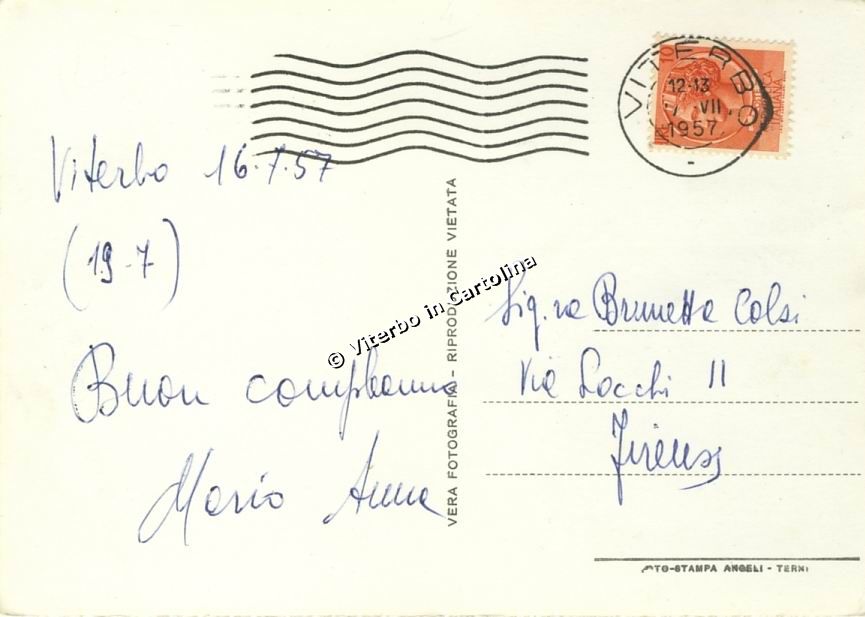 Viterbo 16.7.57
(19-7)
Buon compleanno
Mario Anna
VERA FOTOGRAFIA - RIPRODUZIONE VIETATA
© Viterbo in Cartolina
VITERBO
12-13
VII
1957
10
ITALIANA
Sig.ra Brunetta Colsi
Via Locchi 11
Firenze
FOTO-STAMPA ANGELI - TERNI